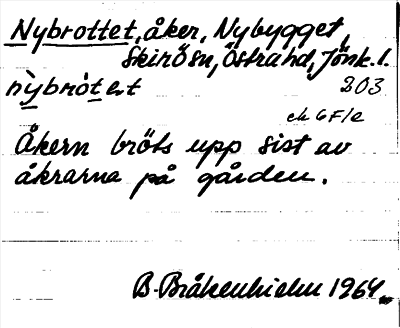 Nybrottet, åker, Nybygget,
Skirösn, Östra hd, Jönk. l.
nỳbròt et 203
ek 6 F/e
Åkern bröts upp sist av
åkrarna på gården.
B. Bråkenhielm 1964